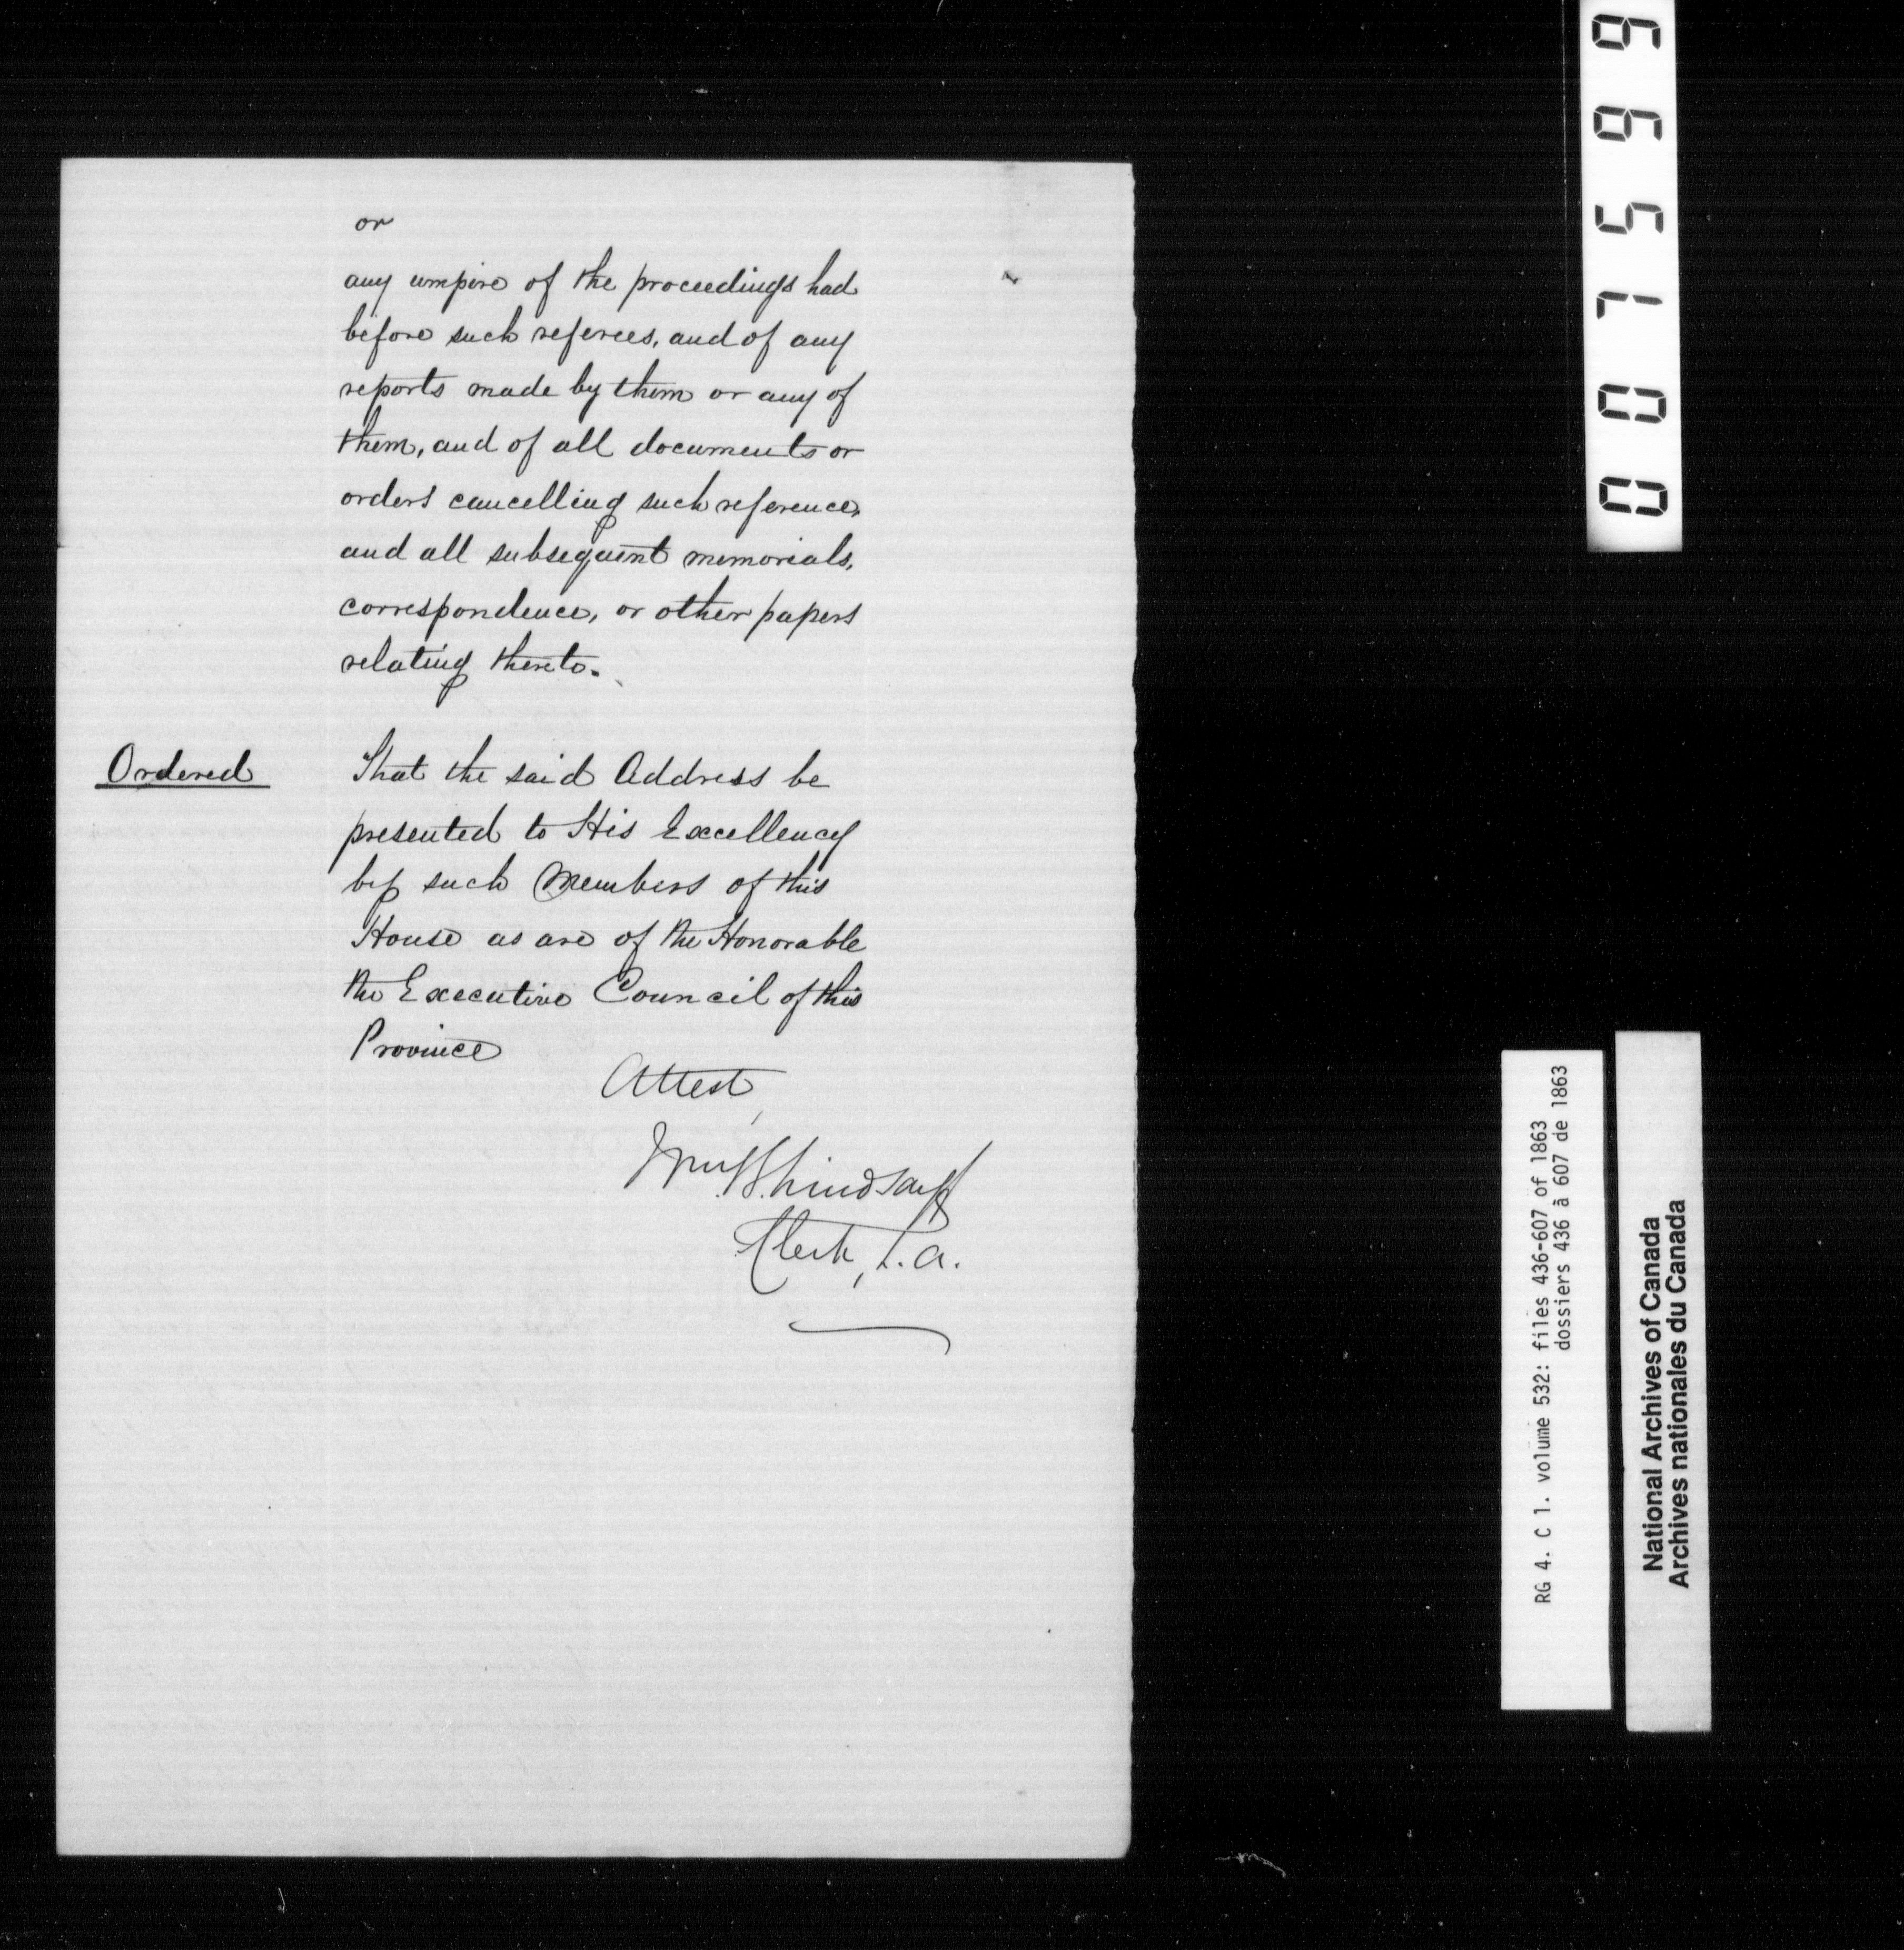 or
any umpire of the proceedings had
before such referees, and of any
reports made by them or any of
them, and of all documents or
orders cancelling such reference,
and all subsequent memorials,
correspondence, or other papers
relating thereto.
Ordered That the said Address be
presented to His Excellency
by such Members of this
House as are of the Honorable
the Executive Council of this
Province
Attest,
Wm. B. Lindsay
Clerk, L. A.
0071599
RG 4. C 1. volume 532: files 436-607 of 1863
dossiers 436 à 607 de 1863
National Archives of Canada
Archives nationales du Canada